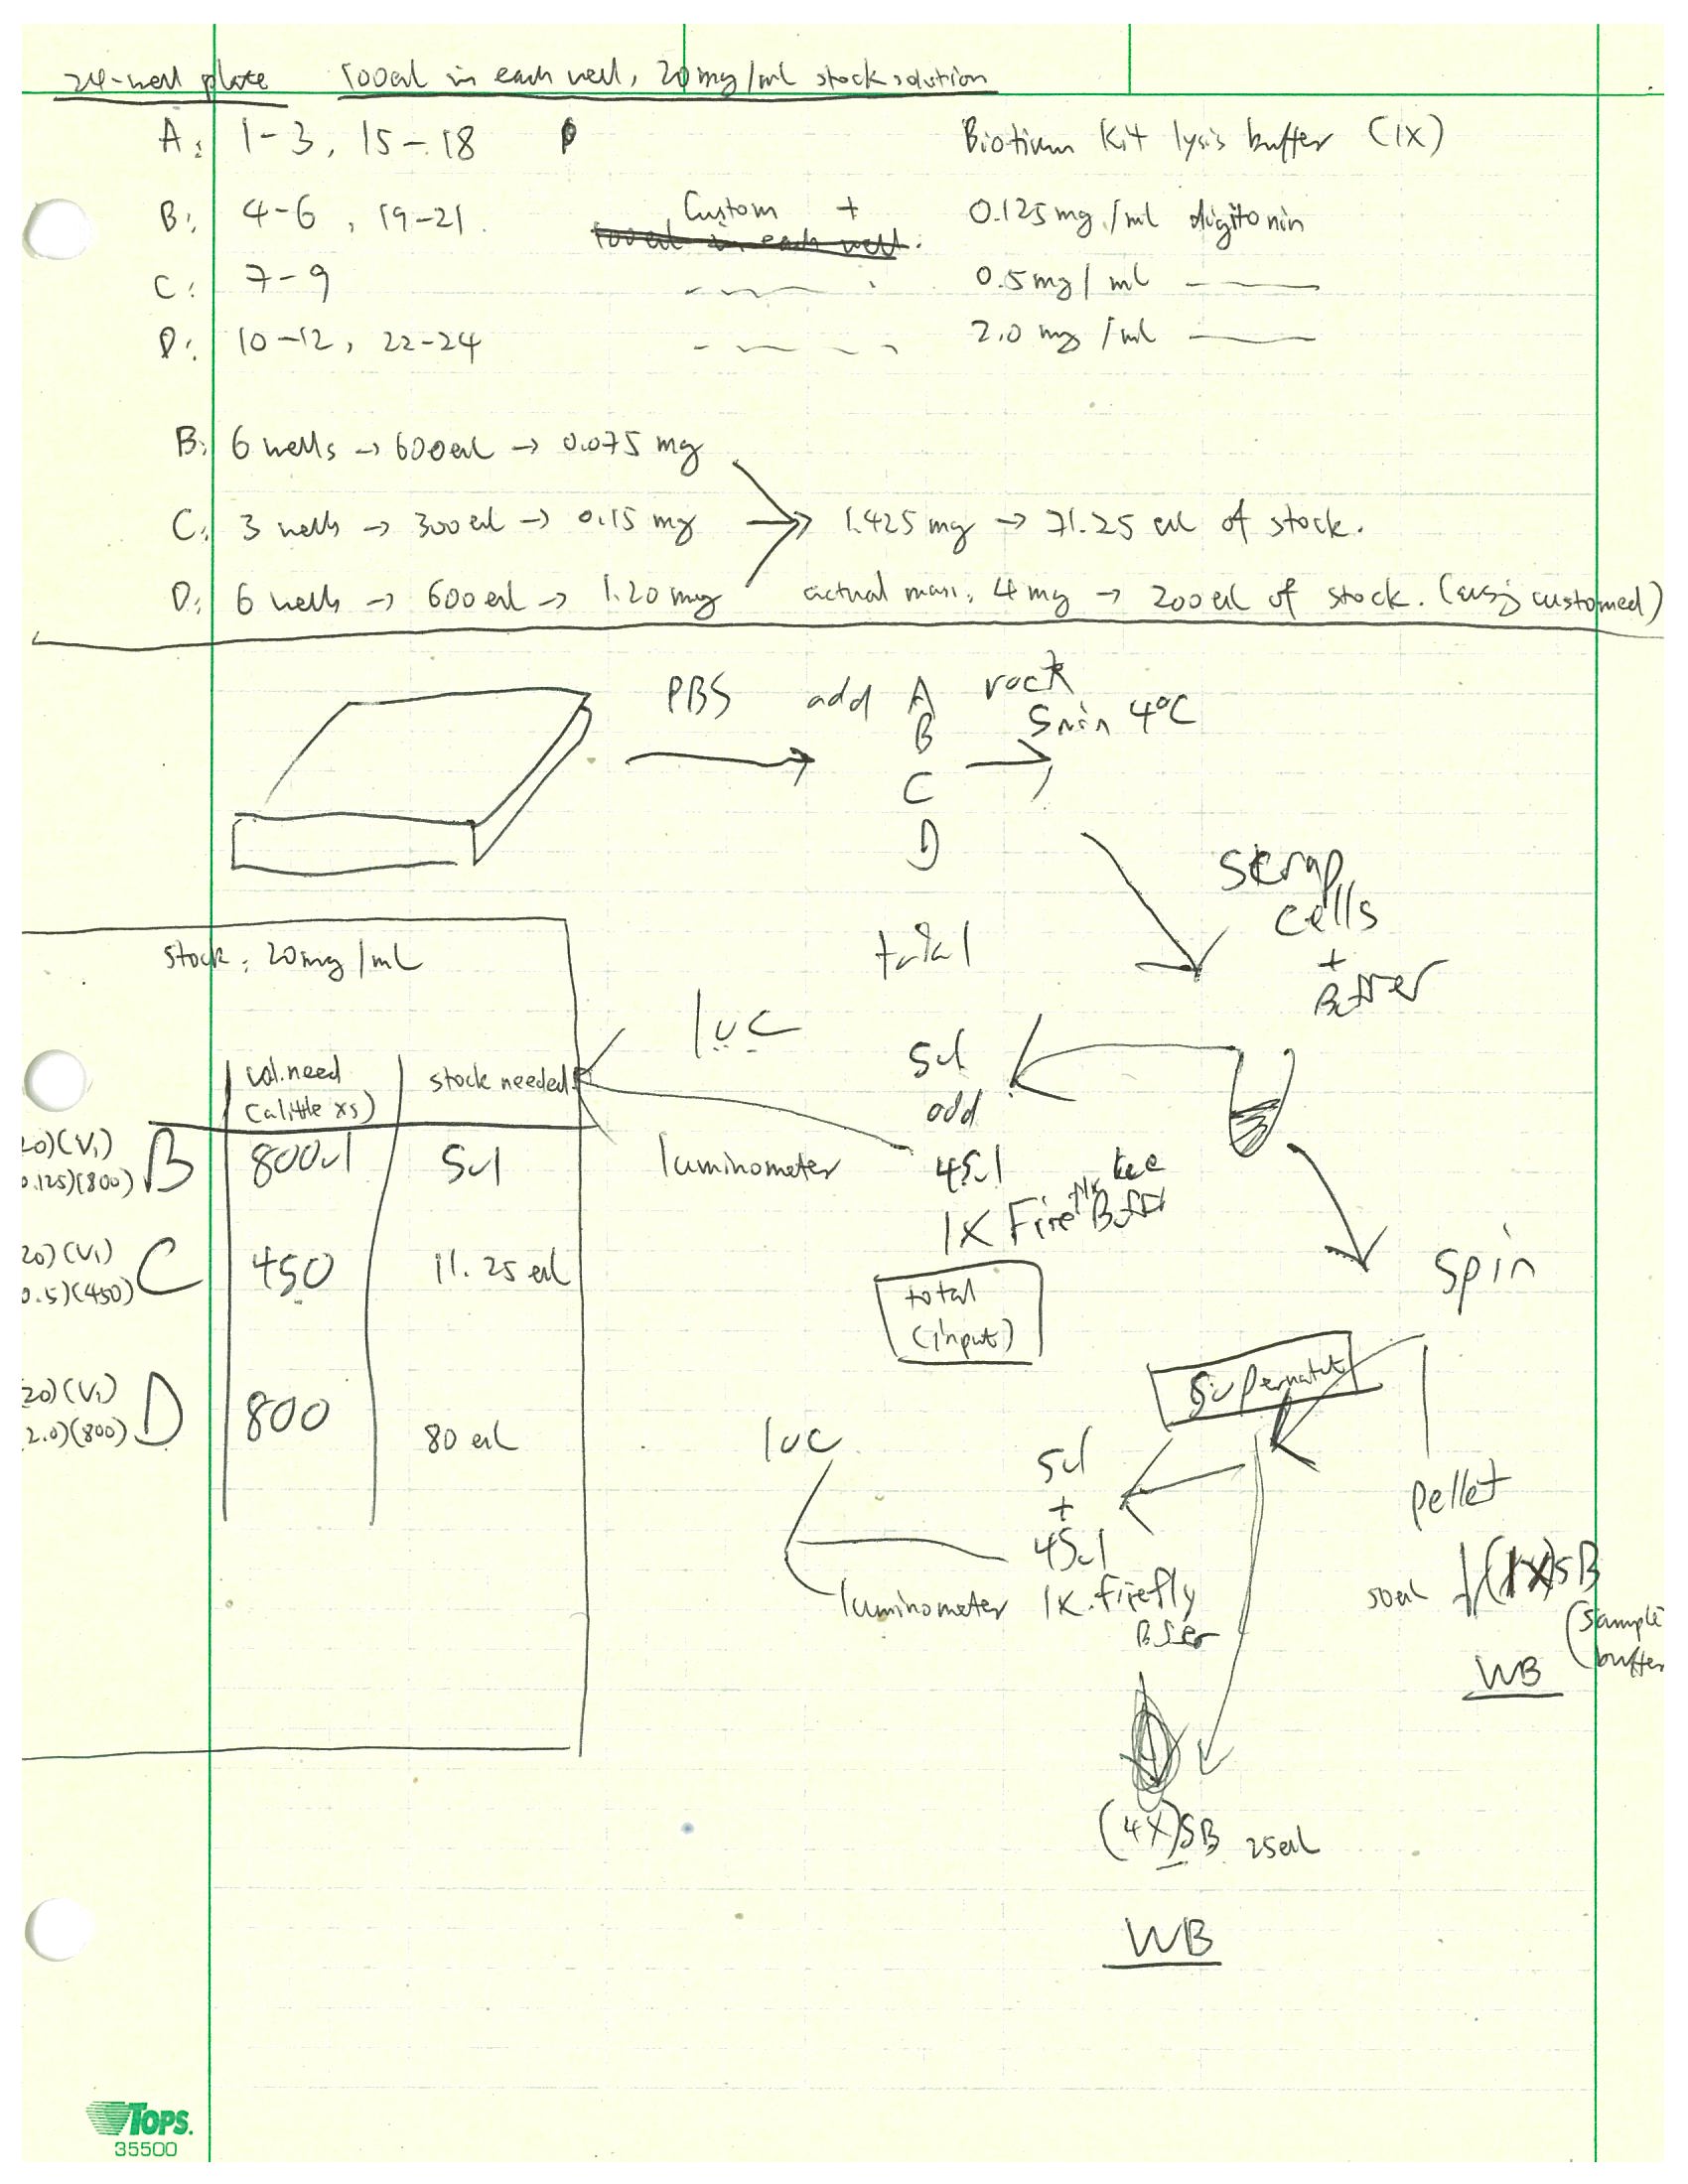 24-well plate 100ul in each well, 20mg/ml stock solution
A: 1-3, 15-18 Biotium Kit lysis buffer (1X)
B: 4-6, 19-21. Custom + 0.125mg/ml digitonin
100ul in each well.
C: 7-9 0.5mg/ml
D: 10-12, 22-24 2.0 mg/ml
B: 6 wells → 600ul → 0.075 mg
C: 3 wells → 300ul → 0.15 mg → 1.425 mg → 71.25 ul of stock.
D: 6 wells → 600ul → 1.20mg actual mass: 4mg → 200ul of stock. (using customed)
PBS add A rock
Spin 4°C
B
C
D
scrap
cells
+
Buffer
stock: 20mg/mL
total
luc
5ul
add
45ul
luminometer
1X Firefly Buffer
total
(input)
vol. need stock needed
(a little xs)
20)(V₁)
0.125)(800) B 800ul 5ul
20)(V₁)
0.5)(450) C 450 11.25 ul
20)(V₁)
2.0)(800) D 800 80 ul
spin
supernatnt
luc
5ul
+
45ul
luminometer 1X firefly
Buffer
pellet
50ul (1X)SB
(sample
buffer
WB
(4X)SB 25ul
WB
TOPS.
35500